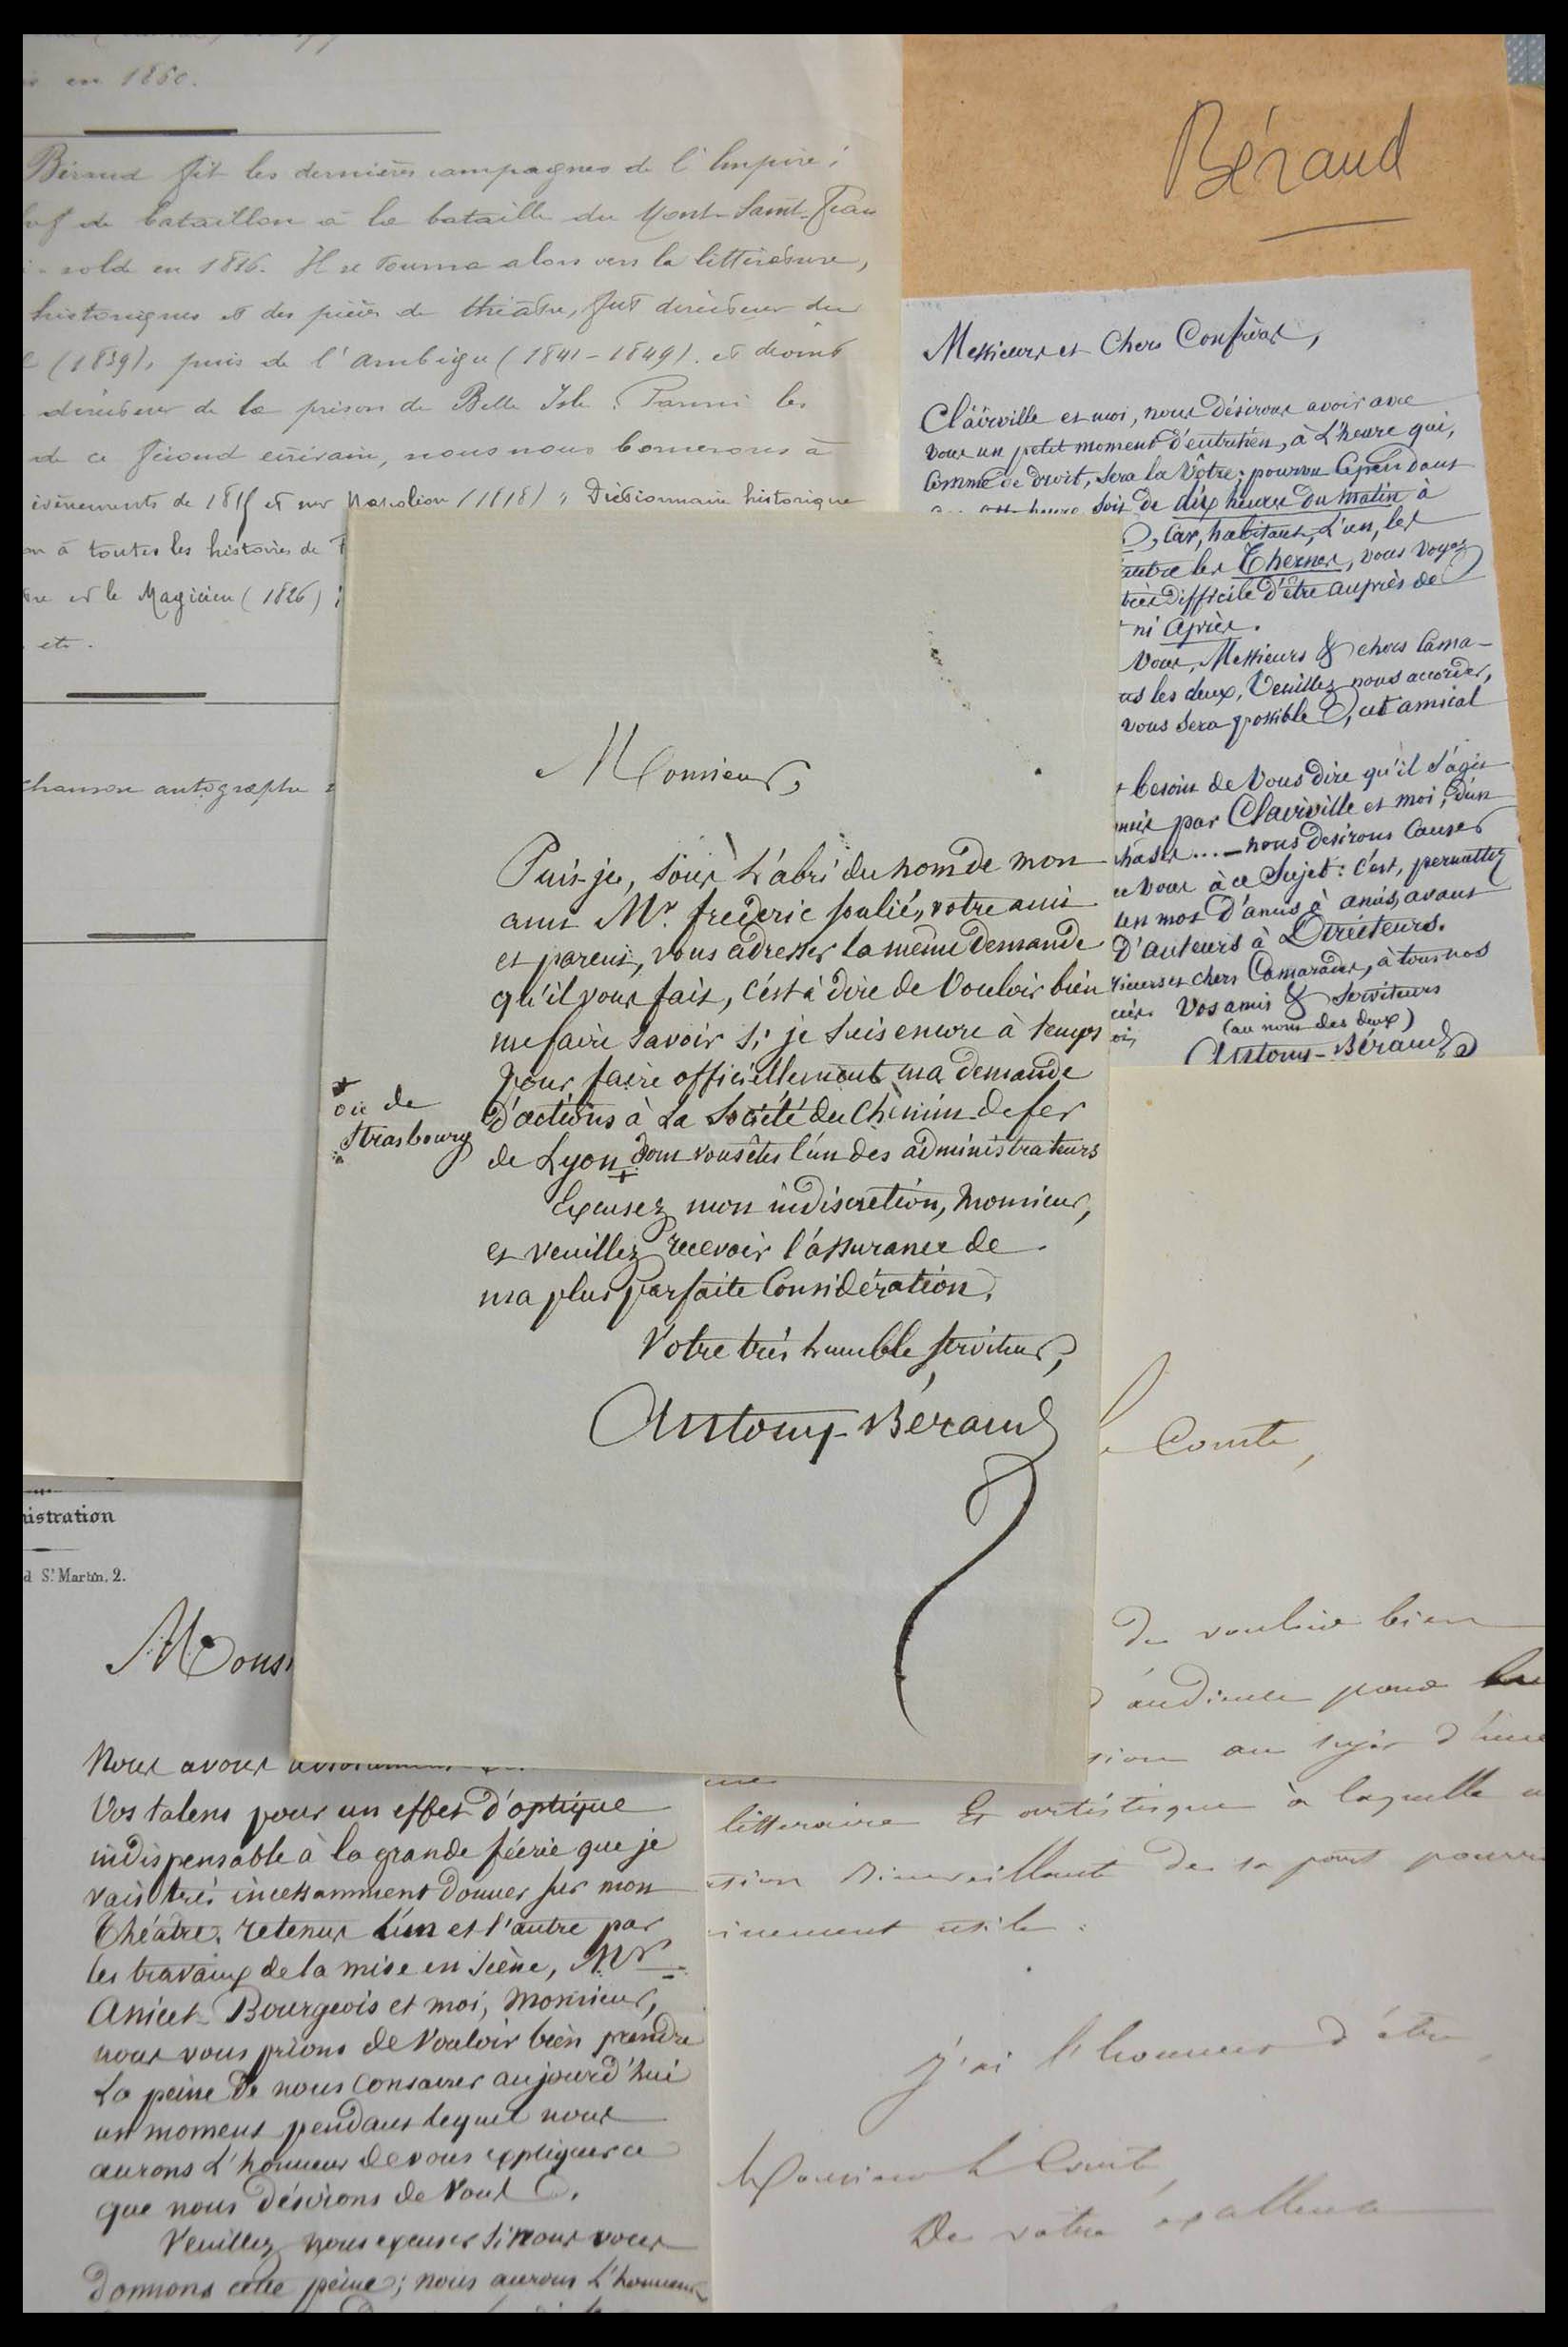 en 1860.
Béraud fit les dernières campagnes de l'Empire;
de bataillon à la bataille du Mont-Saint-Jean
solde en 1816. Il se tourna alors vers la littérature,
historiques et des pièces de théâtre, fut directeur du
(1839), puis de l'Ambigu (1841-1849). et devint
directeur de la prison de Belle Isle. Parmi les
de ce fécond écrivain, nous nous bornerons à
évènements de 1815 et sur Napoléon (1818); Dictionnaire historique
à toutes les histoires de
et le Magicien (1826);
etc.
chanson autographe
Béraud
Messieurs et Chers Confrères,
Clairville et moi, nous désirons avoir avec
vous un petit moment d'entretien, à l'heure qui,
comme de droit, sera la Vôtre; pourvu cependant
heure soit de dix heures du matin à
Car, habitant, l'un, les
autre les Thernes, vous voyez
très difficile d'être auprès de
ni après.
Vous, Messieurs & chers Cama-
les deux, Veuillez nous accorder,
vous sera possible, cet amical
besoin de Vous dire qu'il s'agit
par Clairville et moi, d'un
... – nous desirons Causer
Vous à ce Sujet: c'est, permettez
un mot d'amis à amis, avant
D'auteurs à Directeurs.
et chers Camarades, à tous nos
Vos amis & Serviteurs
(au nom des deux)
Antony-Béraud
Monsieur,
Puis-je, sous l'abri du nom de mon
ami Mr. frederic soulié, votre ami
et parent, vous adresser la même demande
qu'il vous fait, c'est à dire de Vouloir bien
me faire savoir si je suis encore à temps
pour faire officiellement ma demande
d'actions à la Société du Chemin de fer
de Lyon + dont vous êtes l'un des administrateurs
+ ou de
Strasbourg
Excusez mon indiscretion, Monsieur,
et veuillez recevoir l'assurance de
ma plus parfaite Considération.
Votre très humble serviteur,
Antony-Béraud
Comte,
de vouloir bien
audience pour
au sujet d'une
litteraire & artistique à laquelle
bienveillante de sa part
utile.
j'ai l'honneur d'être
Monsieur le Comte,
De votre excellence
nistration
d St. Martin, 2.
Nous avons
Vos talens pour un effet d'optique
indispensable à la grande féerie que je
vais très incessamment donner sur mon
Théatre. retenus l'un et l'autre par
les travaux de la mise en scène, Mr
Anicet-Bourgeois et moi, Monsieur,
nous vous prions de Vouloir bien prendre
La peine de nous Consacrer aujourd'hui
un moment pendant lequel nous
aurons l'honneur de vous expliquer ce
que nous désirons de Vous.
Veuillez nous excuser si nous vous
donnons cette peine; nous aurons l'honneur